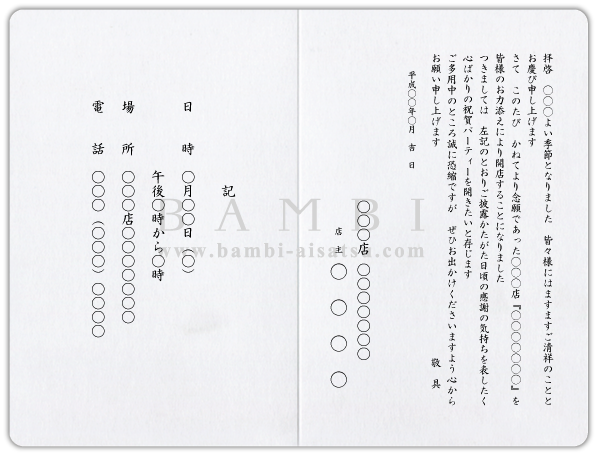 拝啓　〇〇〇よい季節となりました　皆々様にはますますご清祥のことと
お慶び申し上げます
さて　このたび　かねてより念願であった〇〇〇店『〇〇〇〇〇〇』を
皆様のお力添えにより開店することになりました
つきましては　左記のとおりご披露かたがた日頃の感謝の気持ちを表したく
心ばかりの祝賀パーティーを開きたいと存じます
ご多用中のところ誠に恐縮ですが　ぜひお出かけくださいますよう心から
お願い申し上げます
敬具
平成〇〇年〇月　吉日
〇〇店　〇〇〇〇〇〇
店主　〇〇〇〇
記
日時　〇月〇〇日（〇）
午後〇時から〇時
場所　〇〇〇店〇〇〇〇〇〇
電話　〇〇〇（〇〇〇）〇〇〇〇
BAMBI
www.bambi-aisatsu.com